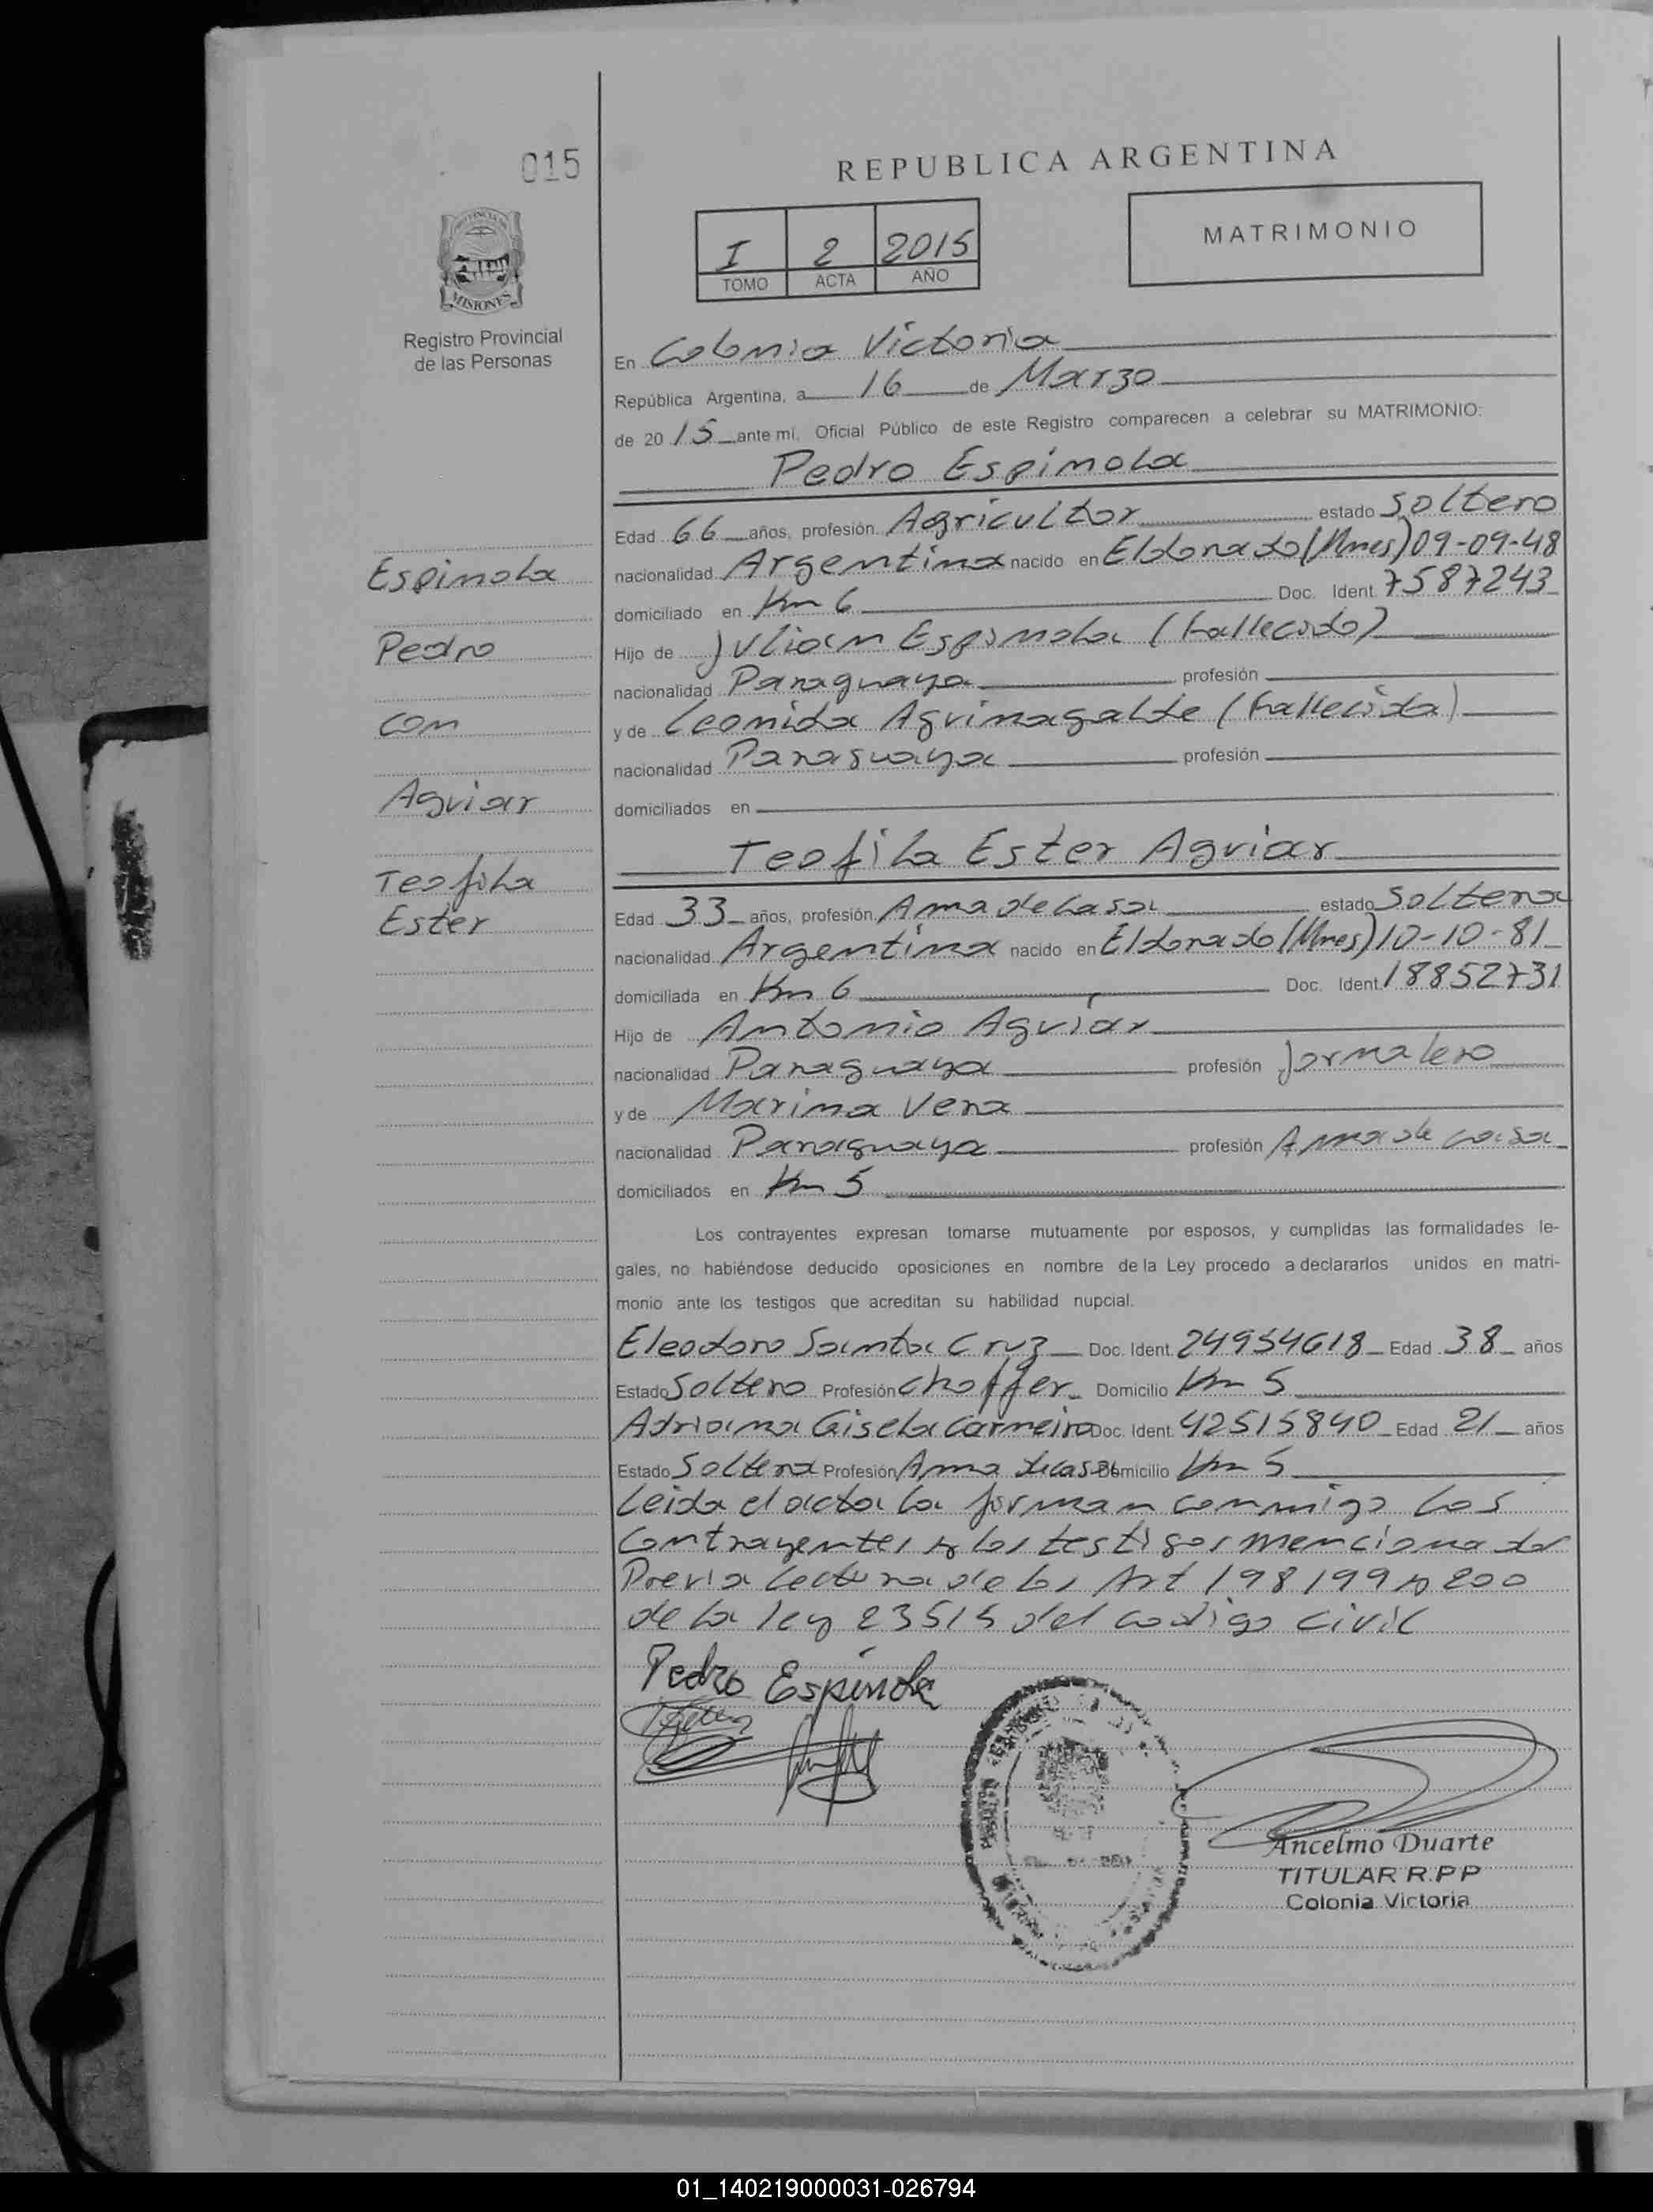 015
REPUBLICA ARGENTINA
MISIONES
Registro Provincial
de las Personas
I 2 2015
TOMO ACTA AÑO
MATRIMONIO
En Colonia Victoria
República Argentina, a 16 de Marzo
de 20 15 ante mí, Oficial Público de este Registro comparecen a celebrar su MATRIMONIO:
Pedro Espinola
Edad 66 años, profesión Agricultor estado Soltero
nacionalidad Argentina nacido en Eldorado (Mnes) 09-09-48
domiciliado en Km 6 Doc. Ident. 7587243
Hijo de Julian Espinola (Fallecido)
nacionalidad Paraguaya profesión
y de Leonida Aguinagalde (Fallecida)
nacionalidad Paraguaya profesión
domiciliados en
Espinola
Pedro
con
Aguiar
Teofila
Ester
Teofila Ester Aguiar
Edad 33 años, profesión Ama de Casa estado Soltera
nacionalidad Argentina nacido en Eldorado (Mnes) 10-10-81
domiciliada en Km 6 Doc. Ident. 18852731
Hijo de Antonio Aguiar
nacionalidad Paraguaya profesión Jornalero
y de Marina Vera
nacionalidad Paraguaya profesión Ama de casa
domiciliados en Km 5
Los contrayentes expresan tomarse mutuamente por esposos, y cumplidas las formalidades le-
gales, no habiéndose deducido oposiciones en nombre de la Ley procedo a declararlos unidos en matri-
monio ante los testigos que acreditan su habilidad nupcial.
Eleodoro Santa Cruz Doc. Ident. 24954618 Edad 38 años
Estado Soltero Profesión Choffer Domicilio Km 5
Adriana Gisela Carneiro Doc. Ident. 42515840 Edad 21 años
Estado Soltera Profesión Ama de casa Domicilio Km 5
Leida el acta la firman conmigo los
Contrayentes y los testigos mencionados
Previa lectura de los Art 198 199 y 200
de la ley 23515 del codigo civil
Pedro Espinola
Ancelmo Duarte
TITULAR R.P.P
Colonia Victoria
01_140219000031-026794